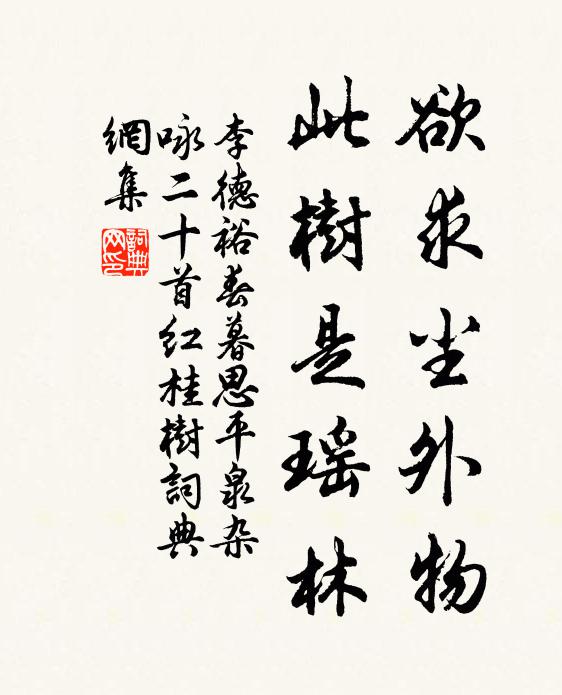 欲求尘外物
此樹是瑶林
李德裕春暮思平泉杂
咏二十首红桂樹詞典
網集
詞典
网印